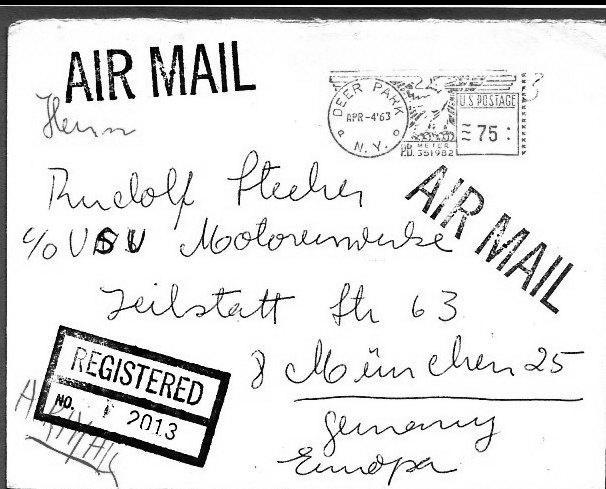 AIR MAIL
DEER PARK
APR-4'63
N.Y.
U.S. POSTAGE
75
P.B. METER 351982
Herrn
Rudolf Stecher
AIR MAIL
c/o USU Motorenwerke
Zeilstatt Str 63
8 München 25
Germany
Europa
REGISTERED
NO. 2013
AIRMAIL